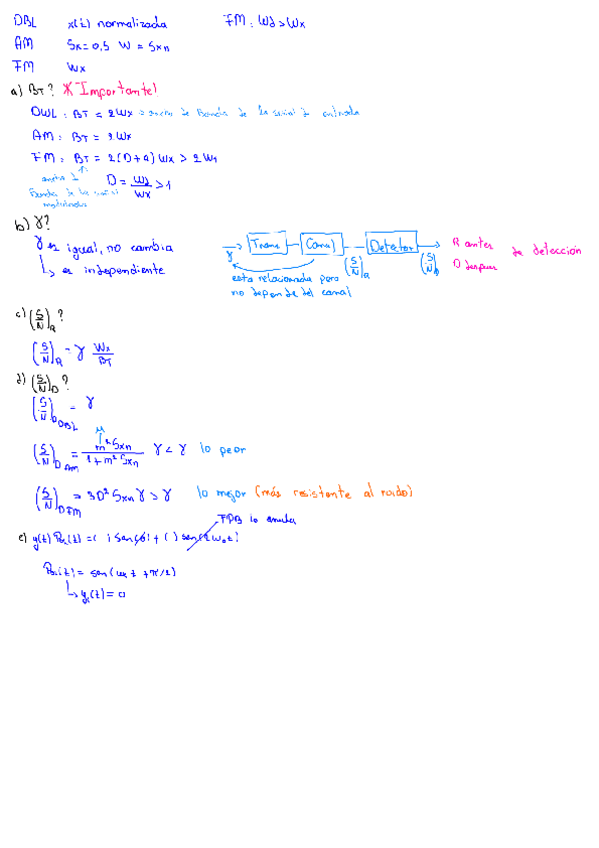 DBL x(t) normalizada FM: Wd > Wx
AM Sx = 0,5 W = Sxn
FM Wx
a) BT? * Importante!
DWL: BT = 2Wx = de Banda de la señal de entrada
AM: BT = 2Wx
FM: BT = 2(D+1) Wx > 2W
D = Wd/Wx > 1
Banda de la señal
b) γ?
γ es igual, no cambia
↳ es independiente
γ → Trans — Canal — Detector →
(S/N)R (S/N)D
R antes
D despues
de detección
esta relacionada pero
no depende del canal
c) (S/N)R?
(S/N)R = γ Wx/BT
d) (S/N)D?
(S/N)D DBL = γ
μ
(S/N)D AM = m² Sxn / 1 + m² Sxn γ < γ lo peor
(S/N)D FM = 3D² Sxn γ > γ lo mejor (más resistente al ruido)
FPB lo anula
e) y(t) = ( ) sen(ϕ) + ( ) sen(2ω₀t)
(t) = sen(t + π/2)
↳ y(t) = 0